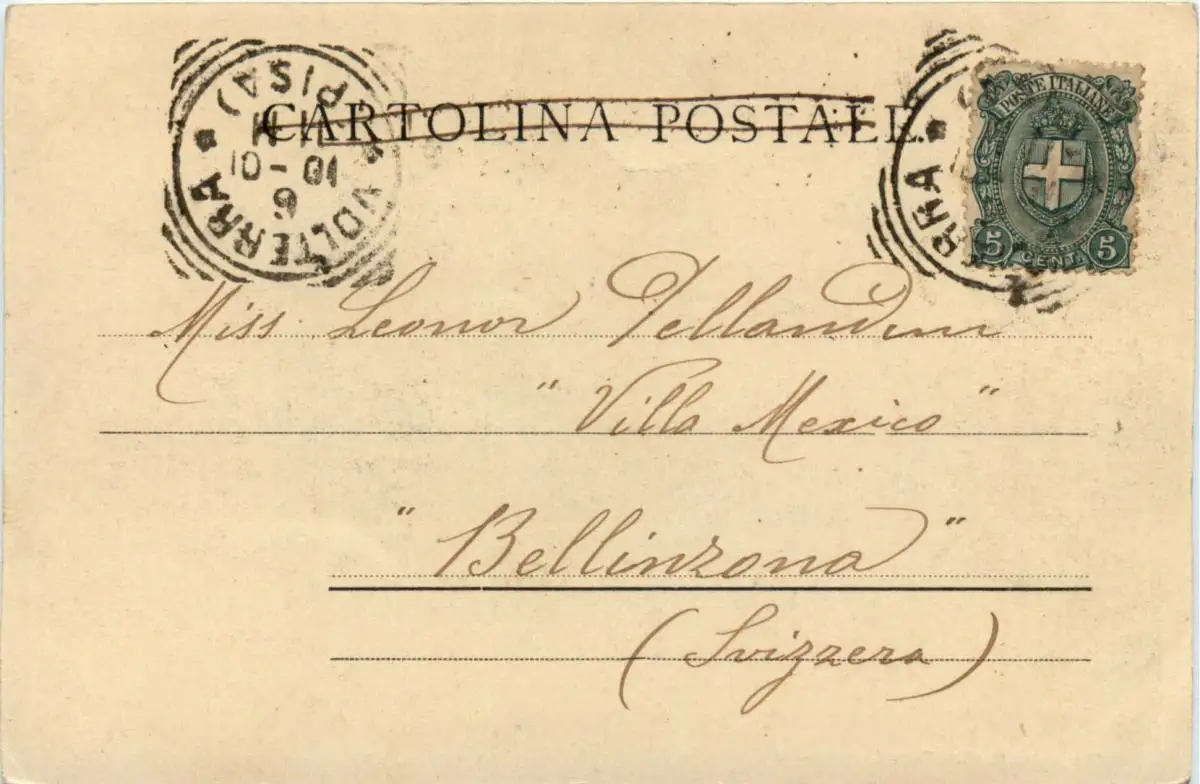 CARTOLINA POSTALE
VOLTERRA
(PISA)
10-01
POSTE ITALIANE
5 CENT. 5
RRA
Miss Leonor
"Villa Mexico"
"Bellinzona"
(Svizzera)